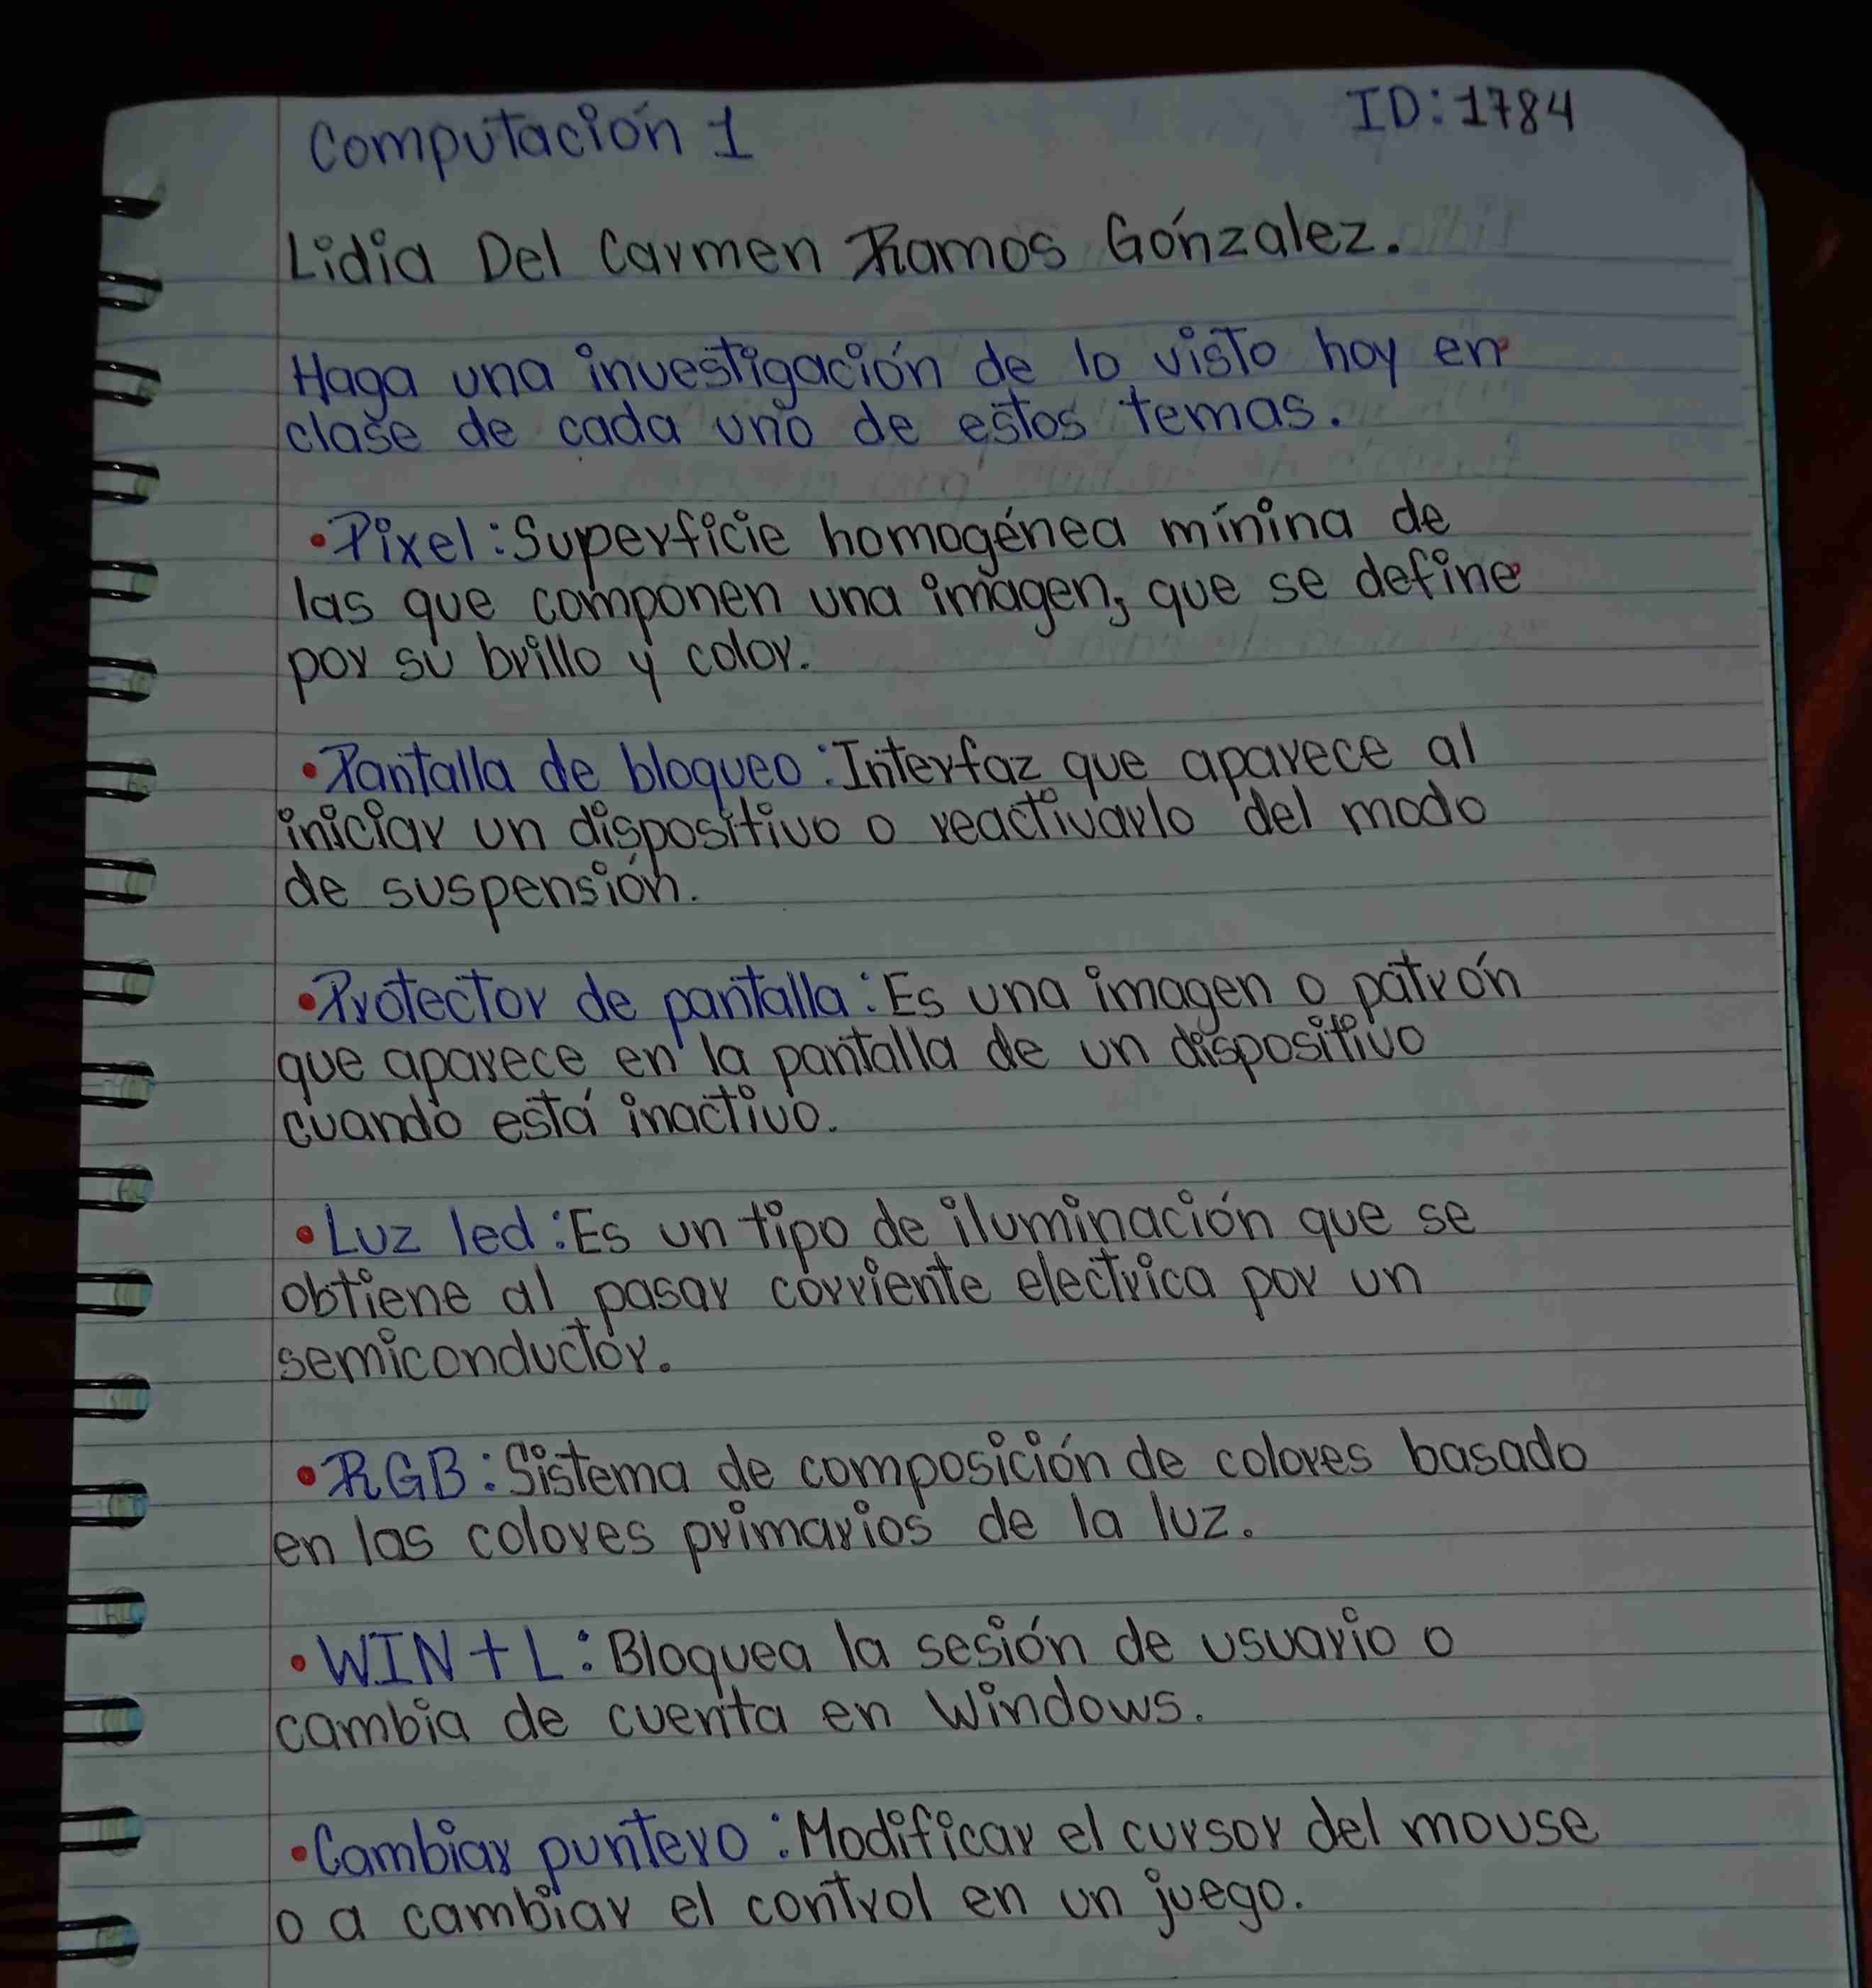 Computación 1
ID: 1784
Lidia Del Carmen Ramos Gónzalez.
Haga una investigación de lo visto hoy en
clase de cada uno de estos temas.
•Pixel: Superficie homogénea mínina de
las que componen una imagen, que se define
por su brillo y color.
•Pantalla de bloqueo: Interfaz que aparece al
iniciar un dispositivo o reactivarlo del modo
de suspensión.
•Protector de pantalla: Es una imagen o patrón
que aparece en la pantalla de un dispositivo
cuando está inactivo.
•Luz led: Es un tipo de iluminación que se
obtiene al pasar corriente electrica por un
semiconductor.
•RGB: Sistema de composición de colores basado
en los colores primarios de la luz.
•WIN + L: Bloquea la sesión de usuario o
cambia de cuenta en Windows.
•Cambiar puntero: Modificar el cursor del mouse
o a cambiar el control en un juego.